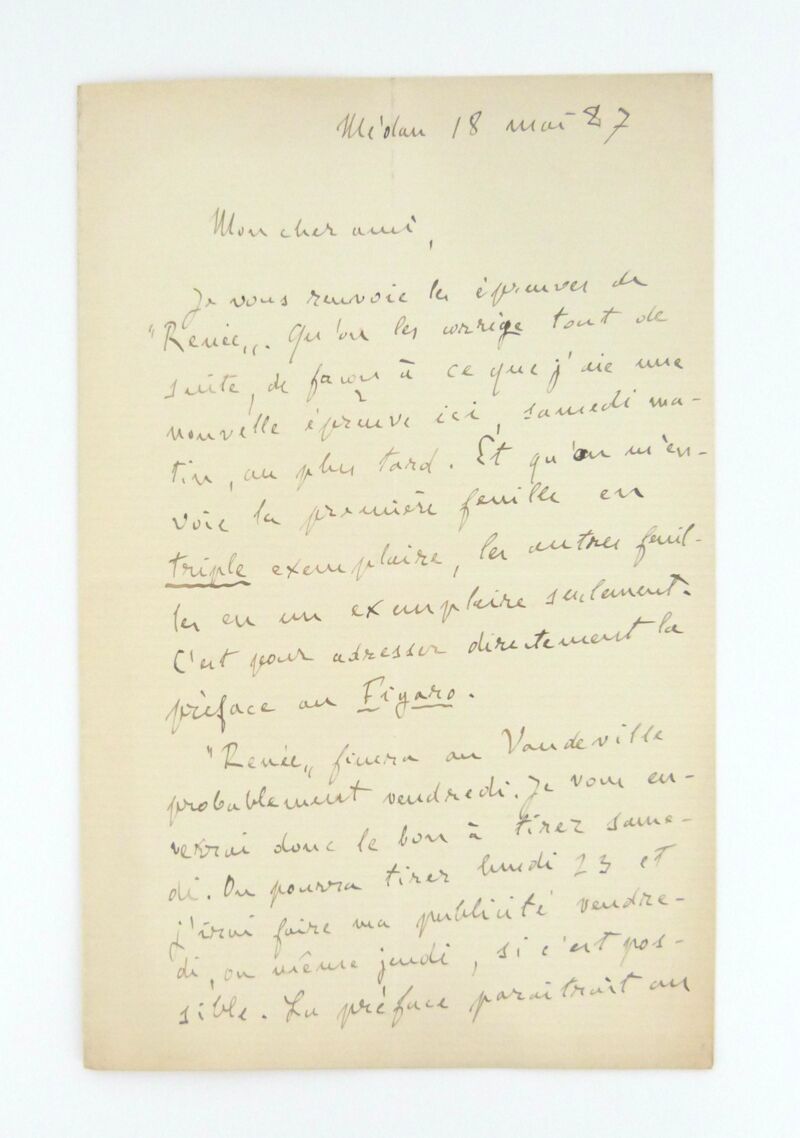 Médan 18 mai 87
Mon cher ami,
Je vous renvoie les épreuves de
"Renée„. Qu'on les corrige tout de
suite, de façon à ce que j'aie une
nouvelle épreuve ici, samedi ma-
tin, au plus tard. Et qu'on m'en-
voie la première feuille en
triple exemplaire, les autres feuil-
les en un exemplaire seulement.
C'est pour adresser directement la
préface au Figaro.
"Renée„ finira au Vaudeville
probablement vendredi. Je vous en-
verrai donc le bon à tirer same-
di. On pourra tirer lundi 23 et
j'irai faire ma publicité vendre-
di, ou même jeudi, si c'est pos-
sible. La préface paraîtrait au